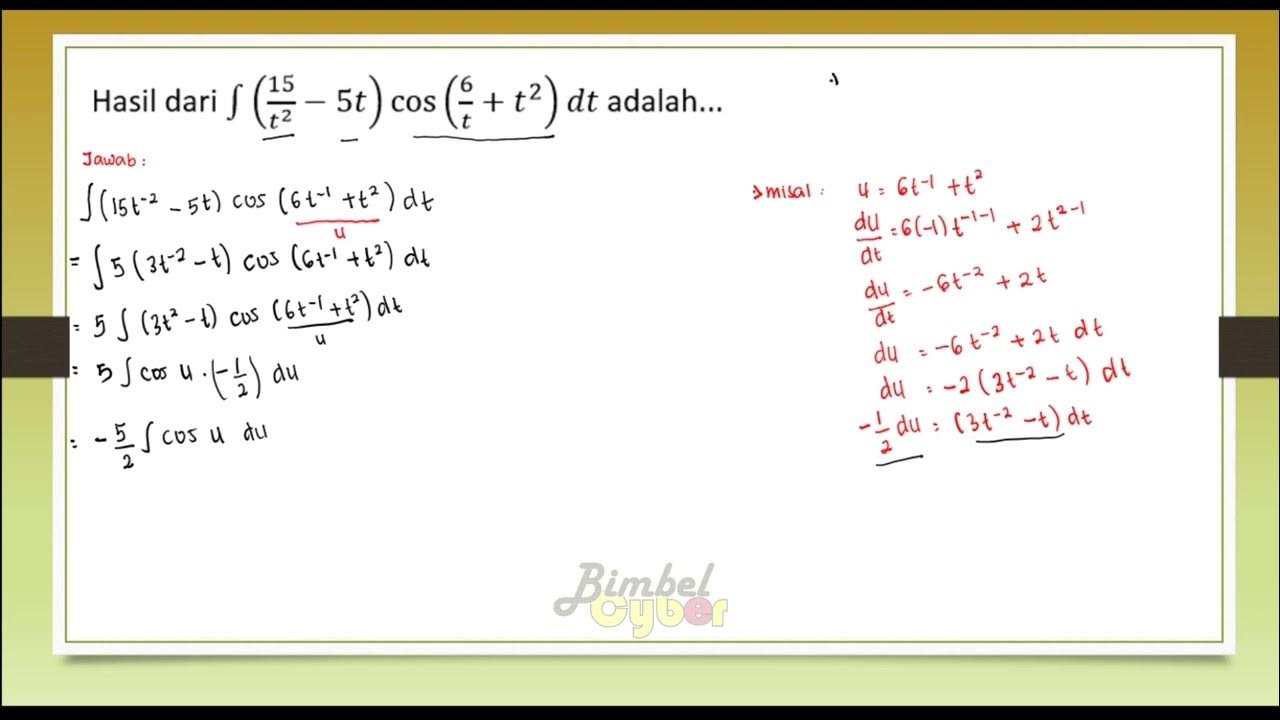 Hasil dari ∫ (15/t² − 5t) cos (6/t + t²) dt adalah...
Jawab :
∫ (15t⁻² − 5t) cos (6t⁻¹ + t²) dt
u
= ∫ 5 (3t⁻² − t) cos (6t⁻¹ + t²) dt
= 5 ∫ (3t² − t) cos (6t⁻¹ + t²) dt
u
= 5 ∫ cos u · (−1/2) du
= −5/2 ∫ cos u du
→ misal : u = 6t⁻¹ + t²
du/dt = 6(−1)t⁻¹⁻¹ + 2t²⁻¹
du/dt = −6t⁻² + 2t
du = −6t⁻² + 2t dt
du = −2 (3t⁻² − t) dt
−1/2 du = (3t⁻² − t) dt
Bimbel
Cyber